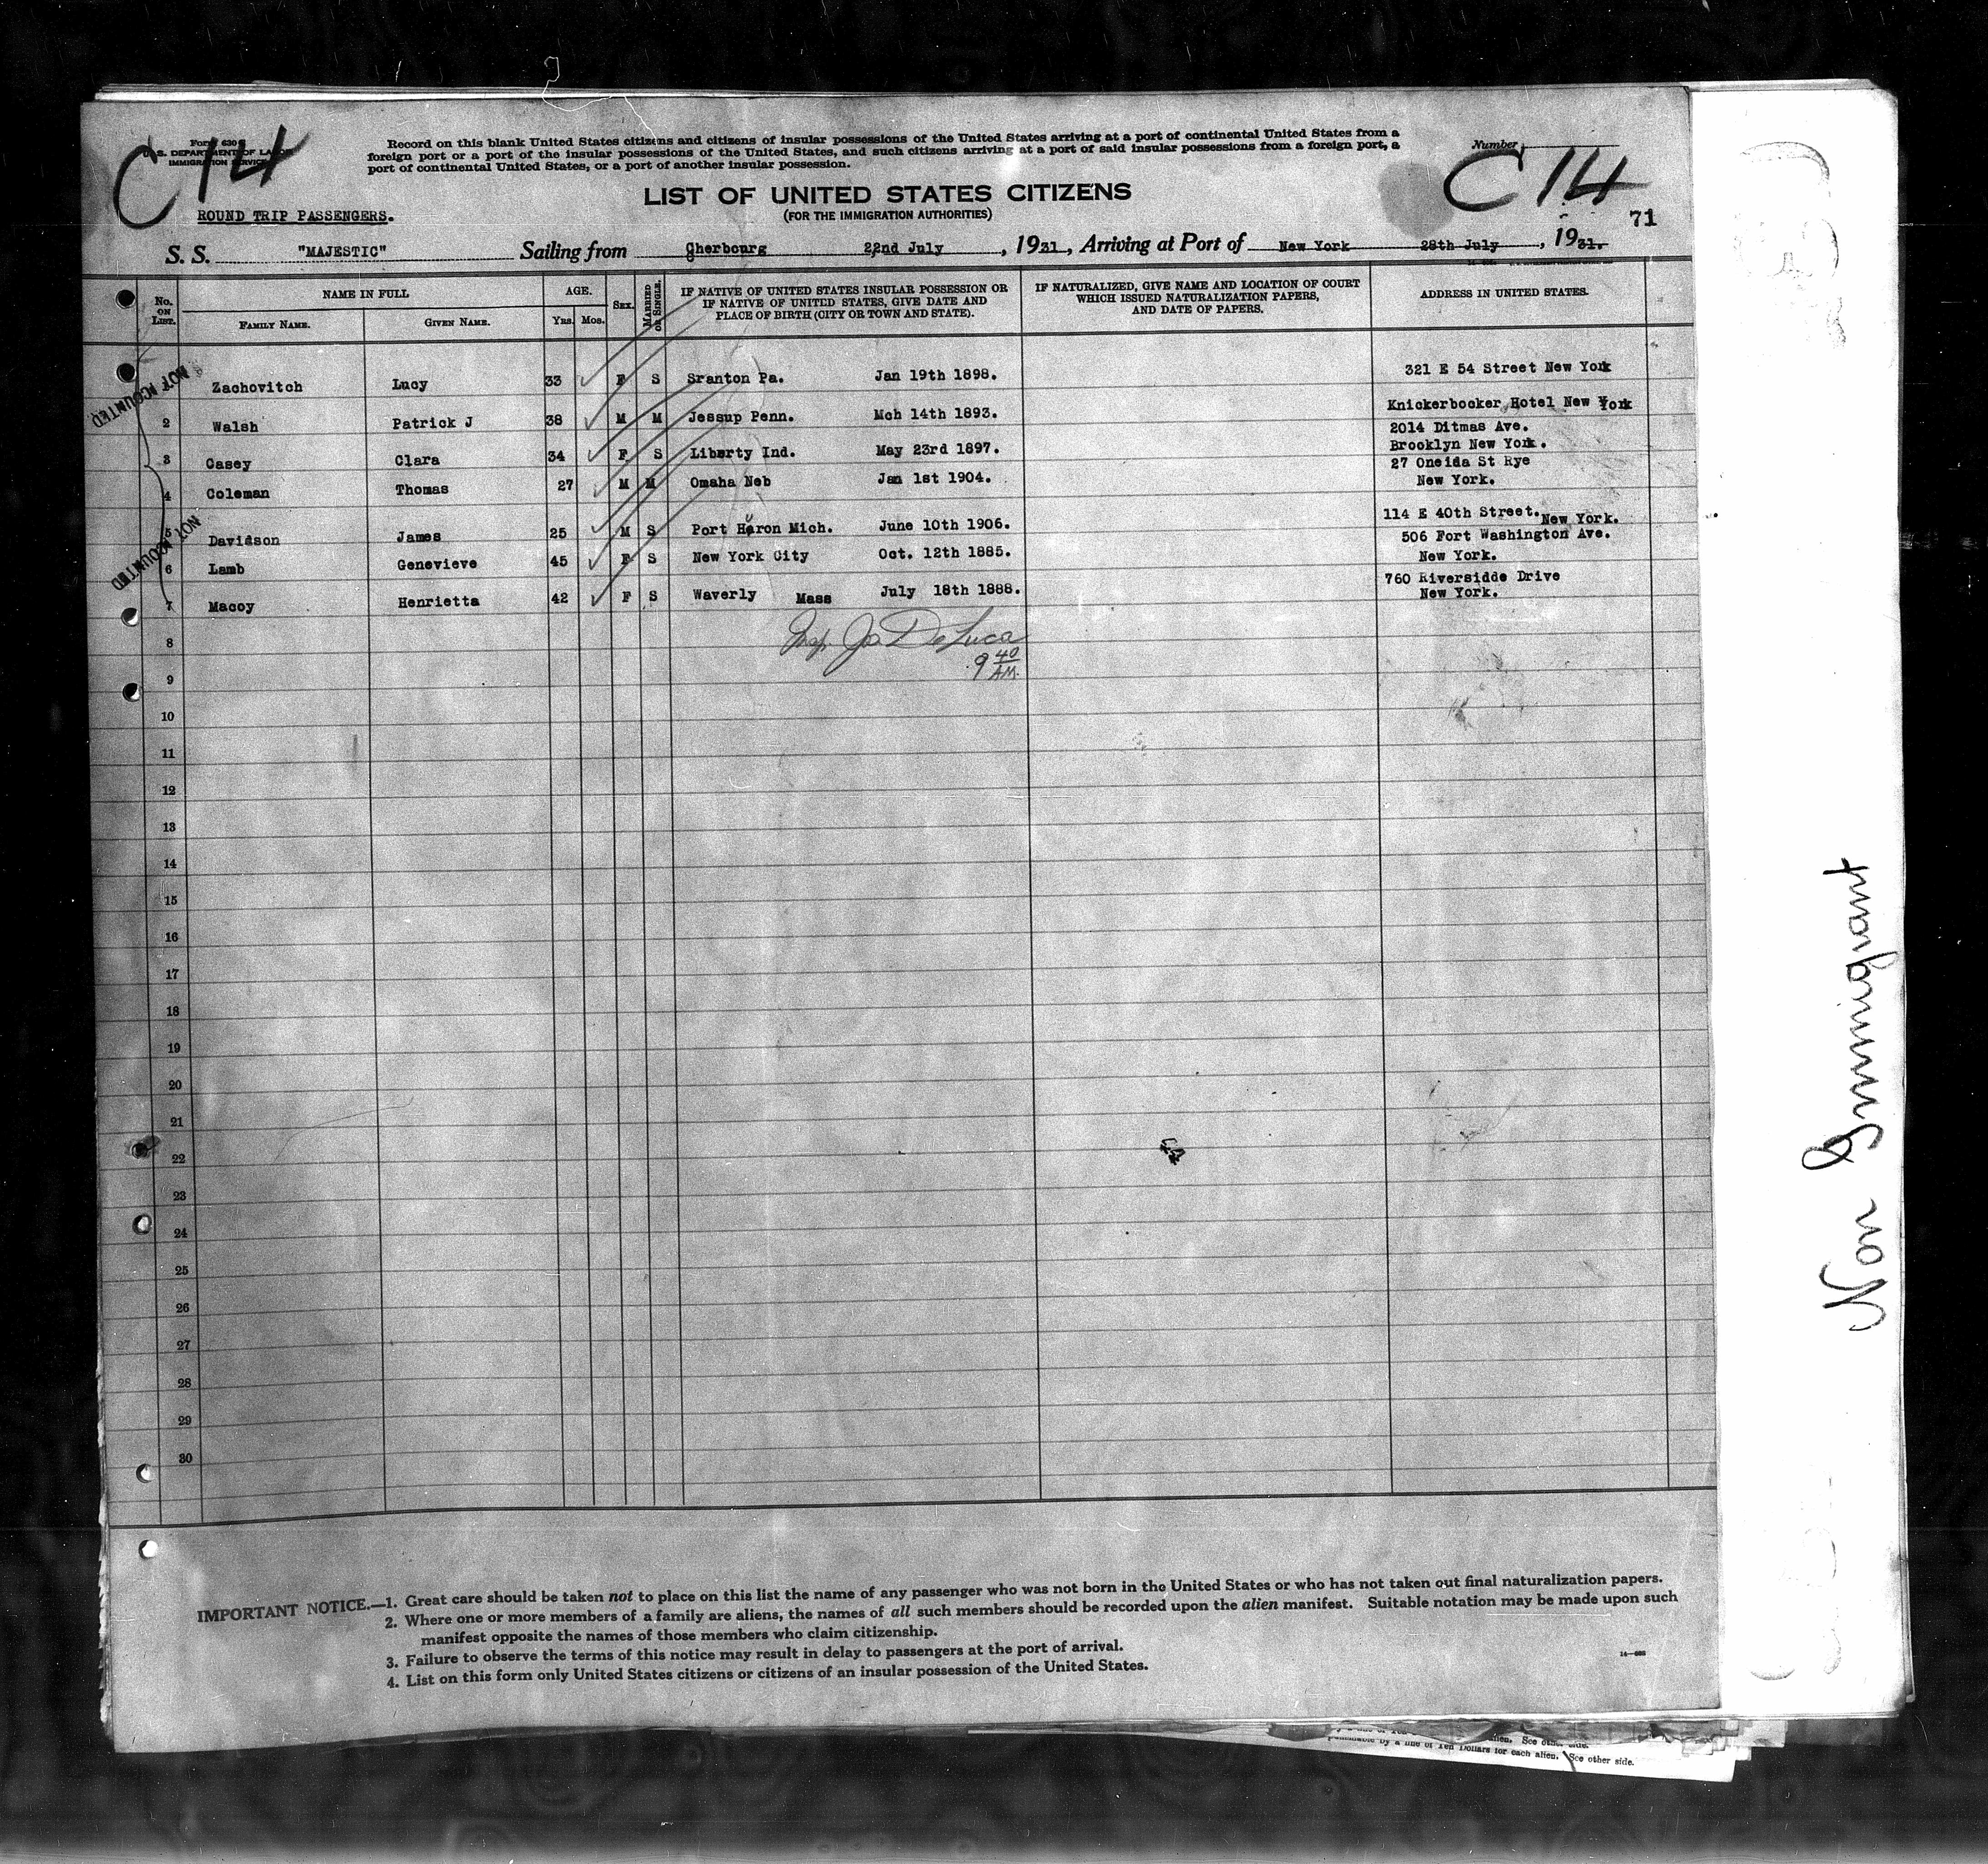 C 14
Form 630
U. S. DEPARTMENT OF LABOR
IMMIGRATION SERVICE
Record on this blank United States citizens and citizens of insular possessions of the United States arriving at a port of continental United States from a
foreign port or a port of the insular possessions of the United States, and such citizens arriving at a port of said insular possessions from a foreign port, a
port of continental United States, or a port of another insular possession.
Number
C 14
LIST OF UNITED STATES CITIZENS
(FOR THE IMMIGRATION AUTHORITIES)
ROUND TRIP PASSENGERS.
71
S. S. "MAJESTIC" Sailing from Cherbourg 22nd July, 1931, Arriving at Port of New York 28th July, 1931.
No. ON LIST. NAME IN FULL AGE. SEX. MARRIED OR SINGLE. IF NATIVE OF UNITED STATES INSULAR POSSESSION OR IF NATIVE OF UNITED STATES, GIVE DATE AND PLACE OF BIRTH (CITY OR TOWN AND STATE). IF NATURALIZED, GIVE NAME AND LOCATION OF COURT WHICH ISSUED NATURALIZATION PAPERS, AND DATE OF PAPERS. ADDRESS IN UNITED STATES.
FAMILY NAME. GIVEN NAME. Yrs. Mos.
NOT ACOUNTED
Zachovitch Lucy 33 F S Sranton Pa. Jan 19th 1898. 321 E 54 Street New York
2 Walsh Patrick J 38 M M Jessup Penn. Mch 14th 1893. Knickerbocker Hotel New York
3 Casey Clara 34 F S Liberty Ind. May 23rd 1897. 2014 Ditmas Ave.
Brooklyn New York.
4 Coleman Thomas 27 M M Omaha Neb Jan 1st 1904. 27 Oneida St Rye
New York.
NOT ACOUNTED
5 Davidson James 25 M S Port Huron Mich. June 10th 1906. 114 E 40th Street. New York.
6 Lamb Genevieve 45 F S New York City Oct. 12th 1885. 506 Fort Washington Ave.
New York.
7 Macoy Henrietta 42 F S Waverly Mass July 18th 1888. 760 Riversidde Drive
New York.
8
Insp. Jo DeLuca
9 40 AM.
9
10
11
12
13
14
15
16
17
18
19
20
21
22
23
24
25
26
27
28
29
30
Non Immigrant
IMPORTANT NOTICE.—1. Great care should be taken not to place on this list the name of any passenger who was not born in the United States or who has not taken out final naturalization papers.
2. Where one or more members of a family are aliens, the names of all such members should be recorded upon the alien manifest. Suitable notation may be made upon such
manifest opposite the names of those members who claim citizenship.
3. Failure to observe the terms of this notice may result in delay to passengers at the port of arrival.
4. List on this form only United States citizens or citizens of an insular possession of the United States.
alien. See other side.
by a fine of Ten Dollars for each alien. See other side.